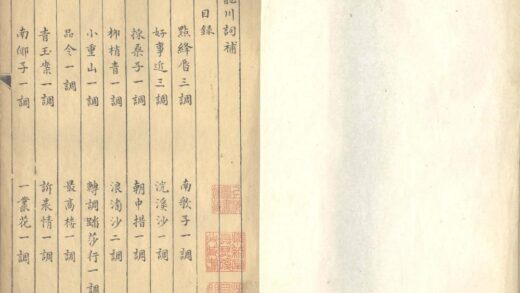 龍川詞補
目錄
點絳唇三調 南歌子一調
好事近三調 浣溪沙一調
採桑子一調 朝中措一調
柳梢青一調 浪淘沙二調
小重山一調 轉調踏莎行一調
品令一調 最高樓一調
青玉案一調 訴衷情一調
南鄉子一調 一叢花一調